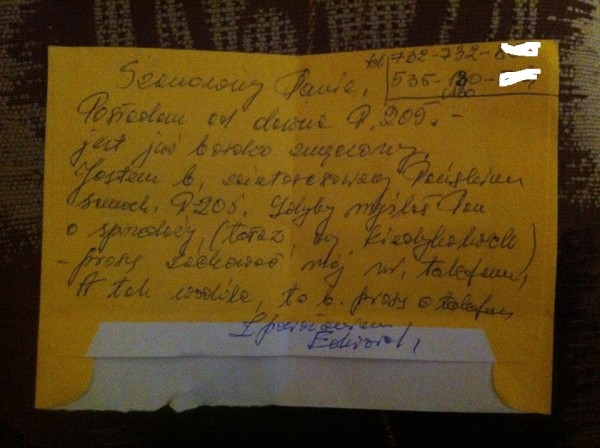 tel 732-732-
535-130-
130
Szanowny Panie,
Posiadam od dawna P. 205.-
jest już bardzo zmęczony,
Jestem b. zainteresowany Pańskim
samoch. P 205. Gdyby myślał Pan
o sprzedaży, (teraz, czy kiedykolwiek)
- proszę zachować mój nr. telefonu,
A tak wogóle, to b. proszę o telefon,
Z poważaniem
Edward,